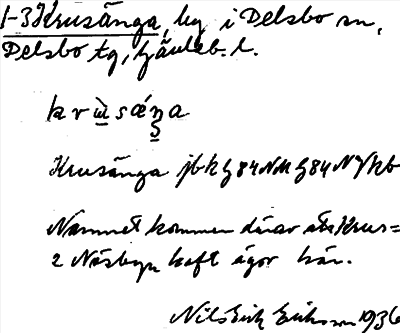 1-3 Krusänga, by i Delsbo sn,
Delsbo tg, Gävleb. l.
krùsáŋa
Krusänga jbk G 84 NM G 84 N
Namnet kommer därav att Krus=
2 Näsbyn haft ägor här.
Nils Erik Eriksson 1936